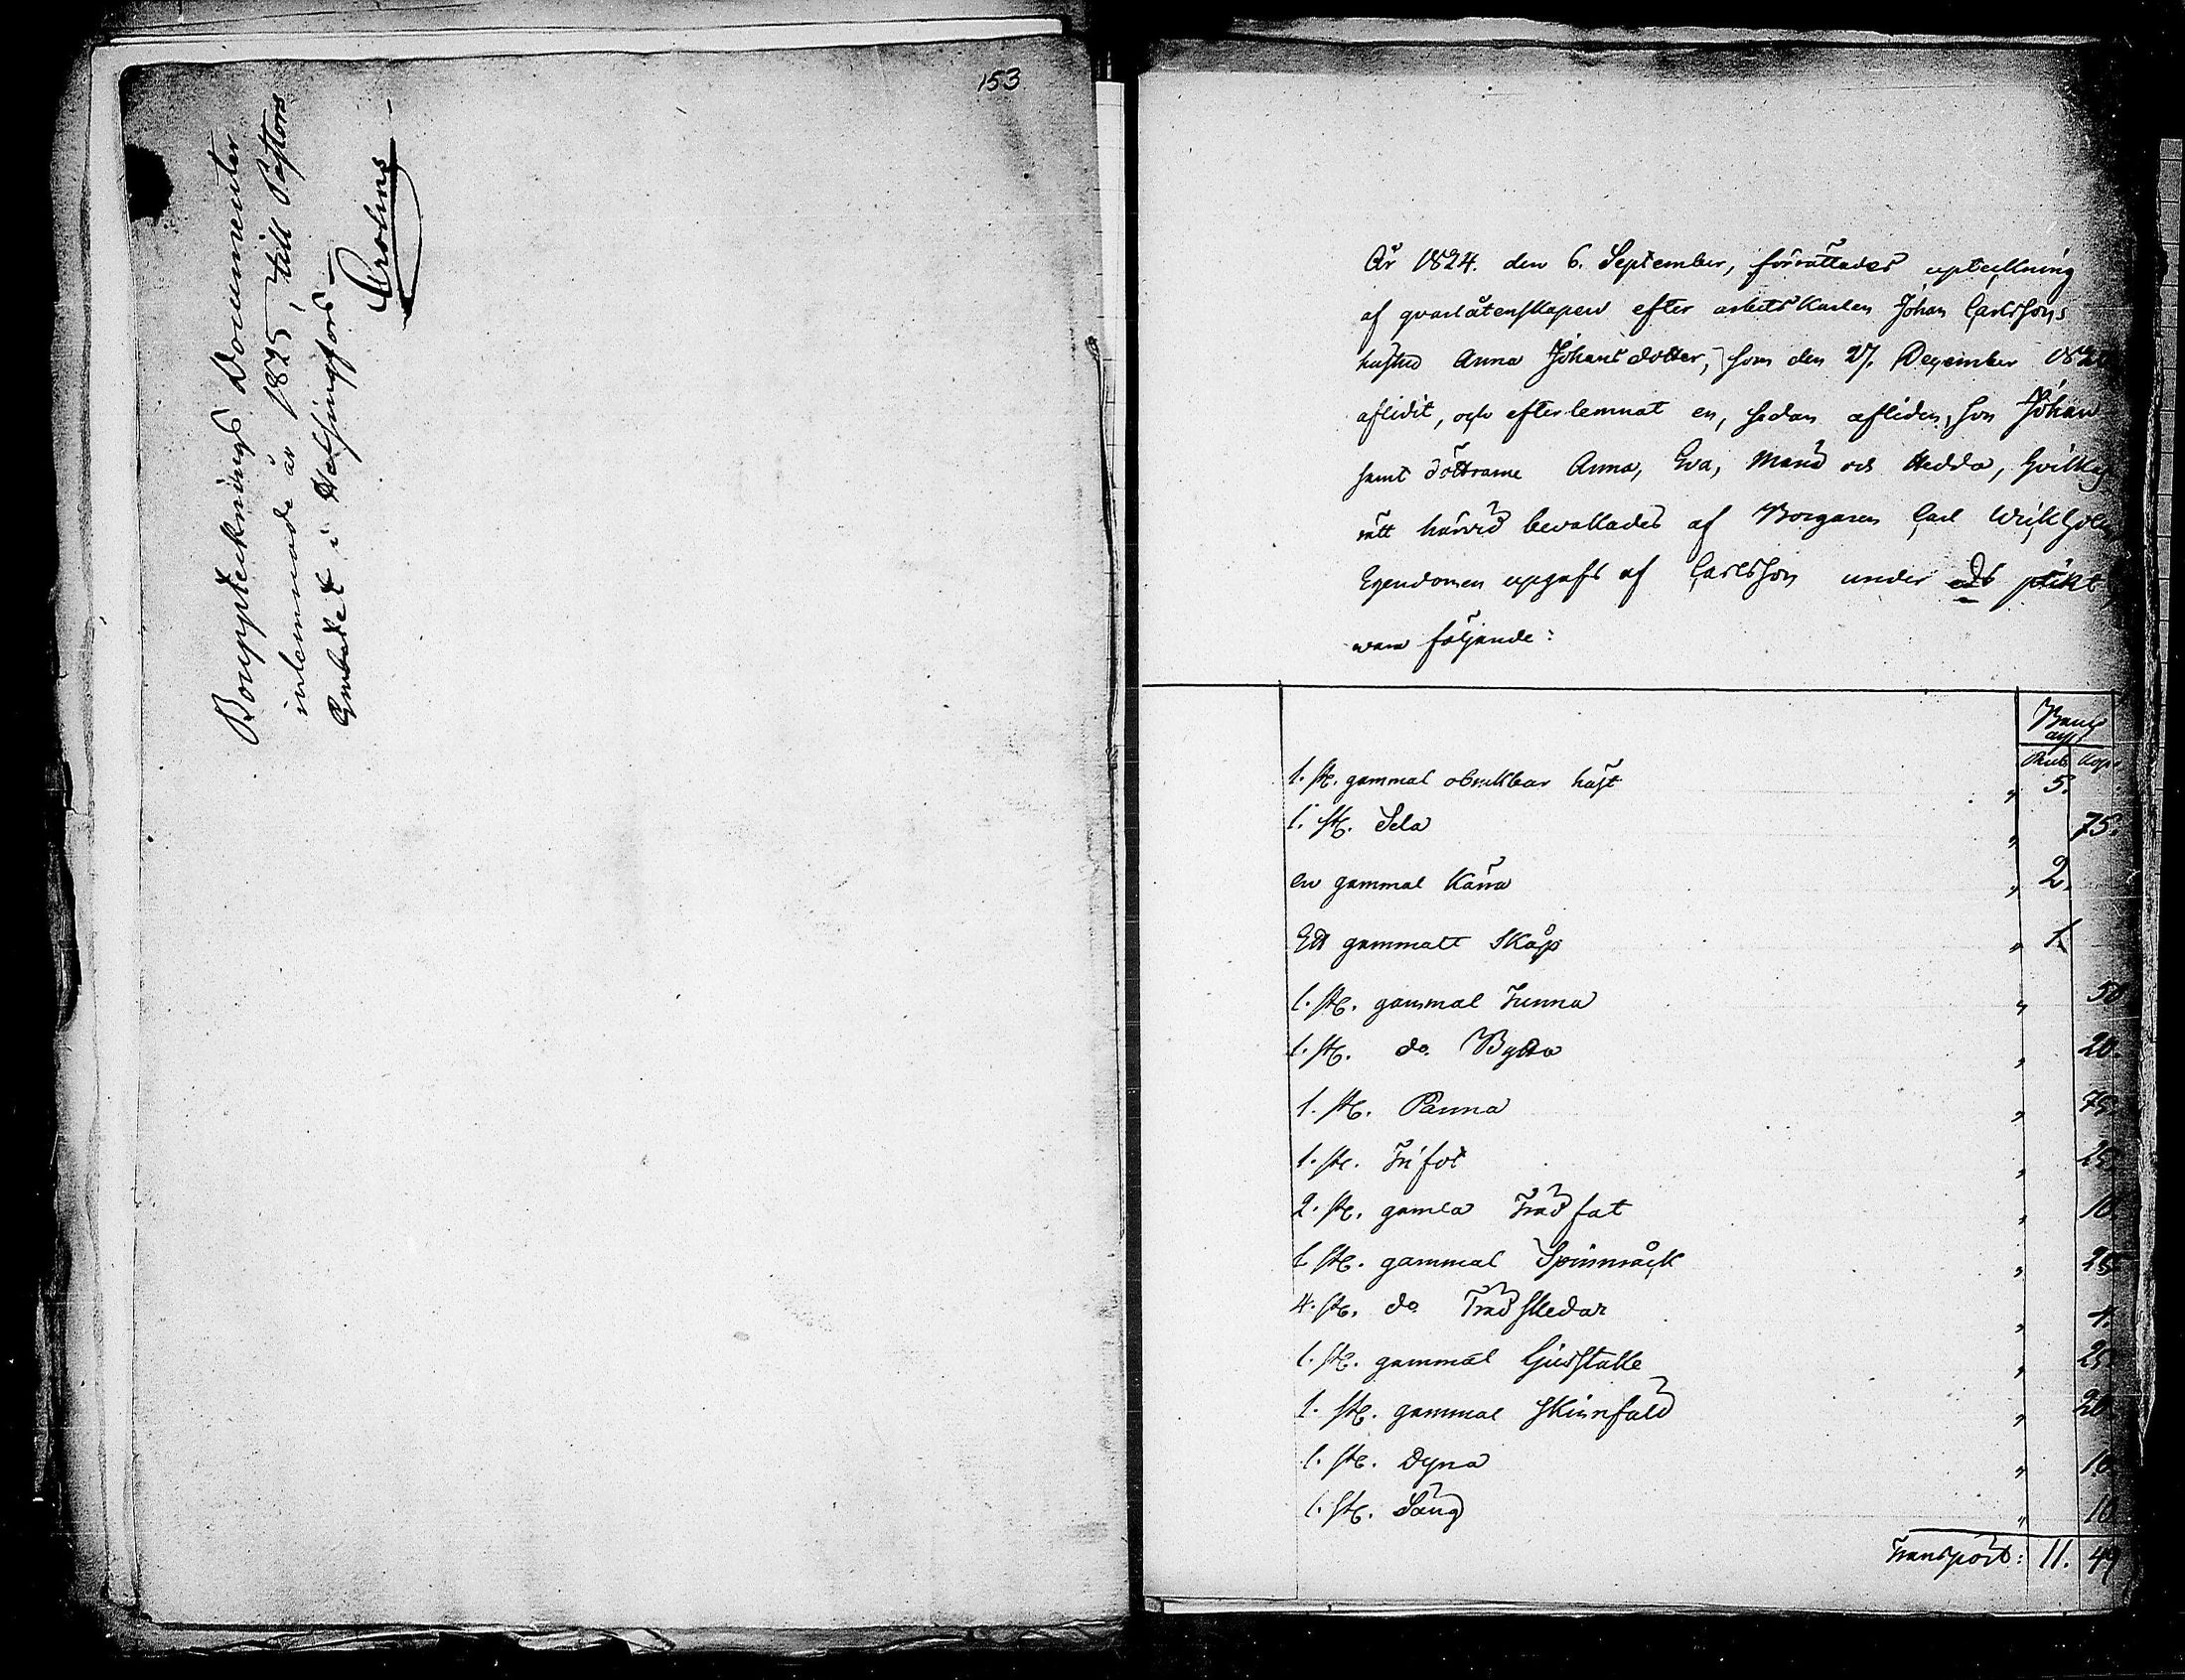 153
Bouppteknings Documenter
inlemnade år 1825, till Pastors
Embetet i Helsingfors –
Crolins
År 1824. den 6. September, förrättades upteckning
af qvarlåtenskapen efter arbetskarlen Johan Carlssons
hustru Anna Johansdotter, som den 27. December
aflidit, och efterlemnat en, sedan afliden, son Johan
samt döttrarne Anna, Eva, Maria och Hedda, hvilkas
rätt härvid bevakades af Borgaren Carl
Egendomen uppgafs af Carlsson under eds plikt
vara följande:
Banco
Rub. Kop.
1. st. gammal obrukbar häst " 5.
1. st. Sela " 75.
en gammal Kärra " 2.
Ett gammalt Skåp " 1.
1. st. gammal Tunna " 50
1. st. do Bytta " 20.
1. st. Panna " 75.
1. st. Trifot " 25.
2. st. gamla Träd fat " 10.
1 st. gammal Spinnråck " 25
4. st. do Trädskedar " 4.
1. st. gammal Ljusstake " 25.
1. st. gammal Skinnfäld " 20.
1. st. Dyna " 10.
1. st. Säng " 10
Transport: 11. 49